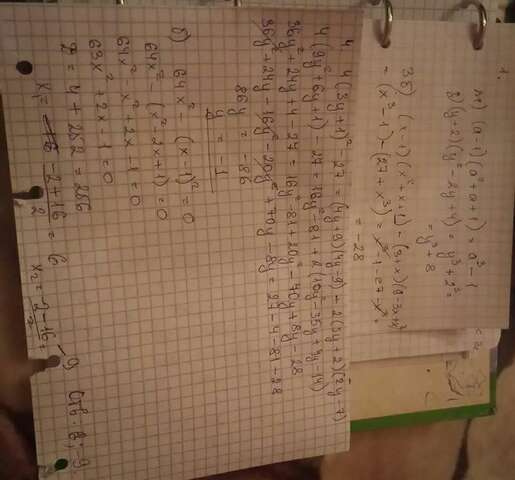 1.
а) (a-1)(a²+a+1) = a³-1
2) (y+2)(y²-2y+4) = y³+2³=
= y³+8
35) (x-1)(x²+x+1) - (3+x)(9-3x+x²)
= (x³-1) - (27+x³) = x³-1-27-x³ =
= -28
4 4(3y+1)² - 27 = (4y+9)(4y-9) + 2(5y+2)(2y-7)
4(9y²+6y+1) - 27 = 16y²-81 + 2(10y²-35y+4y-14)
36y²+24y+4-27 = 16y²-81+20y²-70y+8y-28
36y²+24y-16y²-20y²+70y-8y = 27-4-81-28
86y = -86
y = -1
б) 64x² - (x-1)² = 0
64x² (x²-2x+1) = 0
64x² x²+2x-1 = 0
63x²+2x-1 = 0
D = 4+252 = 256
x₁ = -2+16 / 2 = 6 x₂ = -2-16 / 2 = -9 Отв: